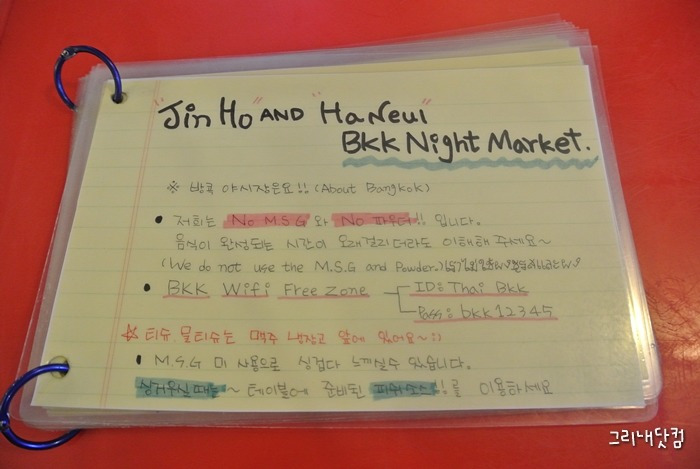 "Jin Ho" AND "HaNeul"
BKK Night Market.
※ 방콕 야시장은요!! (About Bangkok)
• 저희는 No M.S.G 와 No 파우더!! 입니다.
음식이 완성되는 시간이 오래걸리더라도 이해해 주세요~
(We do not use the M.S.G and Powder.)
• BKK Wifi Free Zone
ID: Thai Bkk
Pass: bkk12345
☆ 티슈 물티슈는 맥주 냉장고 앞에 있어요~:)
• M.S.G 미 사용으로 싱겁다 느끼실수 있습니다.
싱거우실때는~ 테이블에 준비된 피쉬소스!!를 이용하세요
그리내닷컴